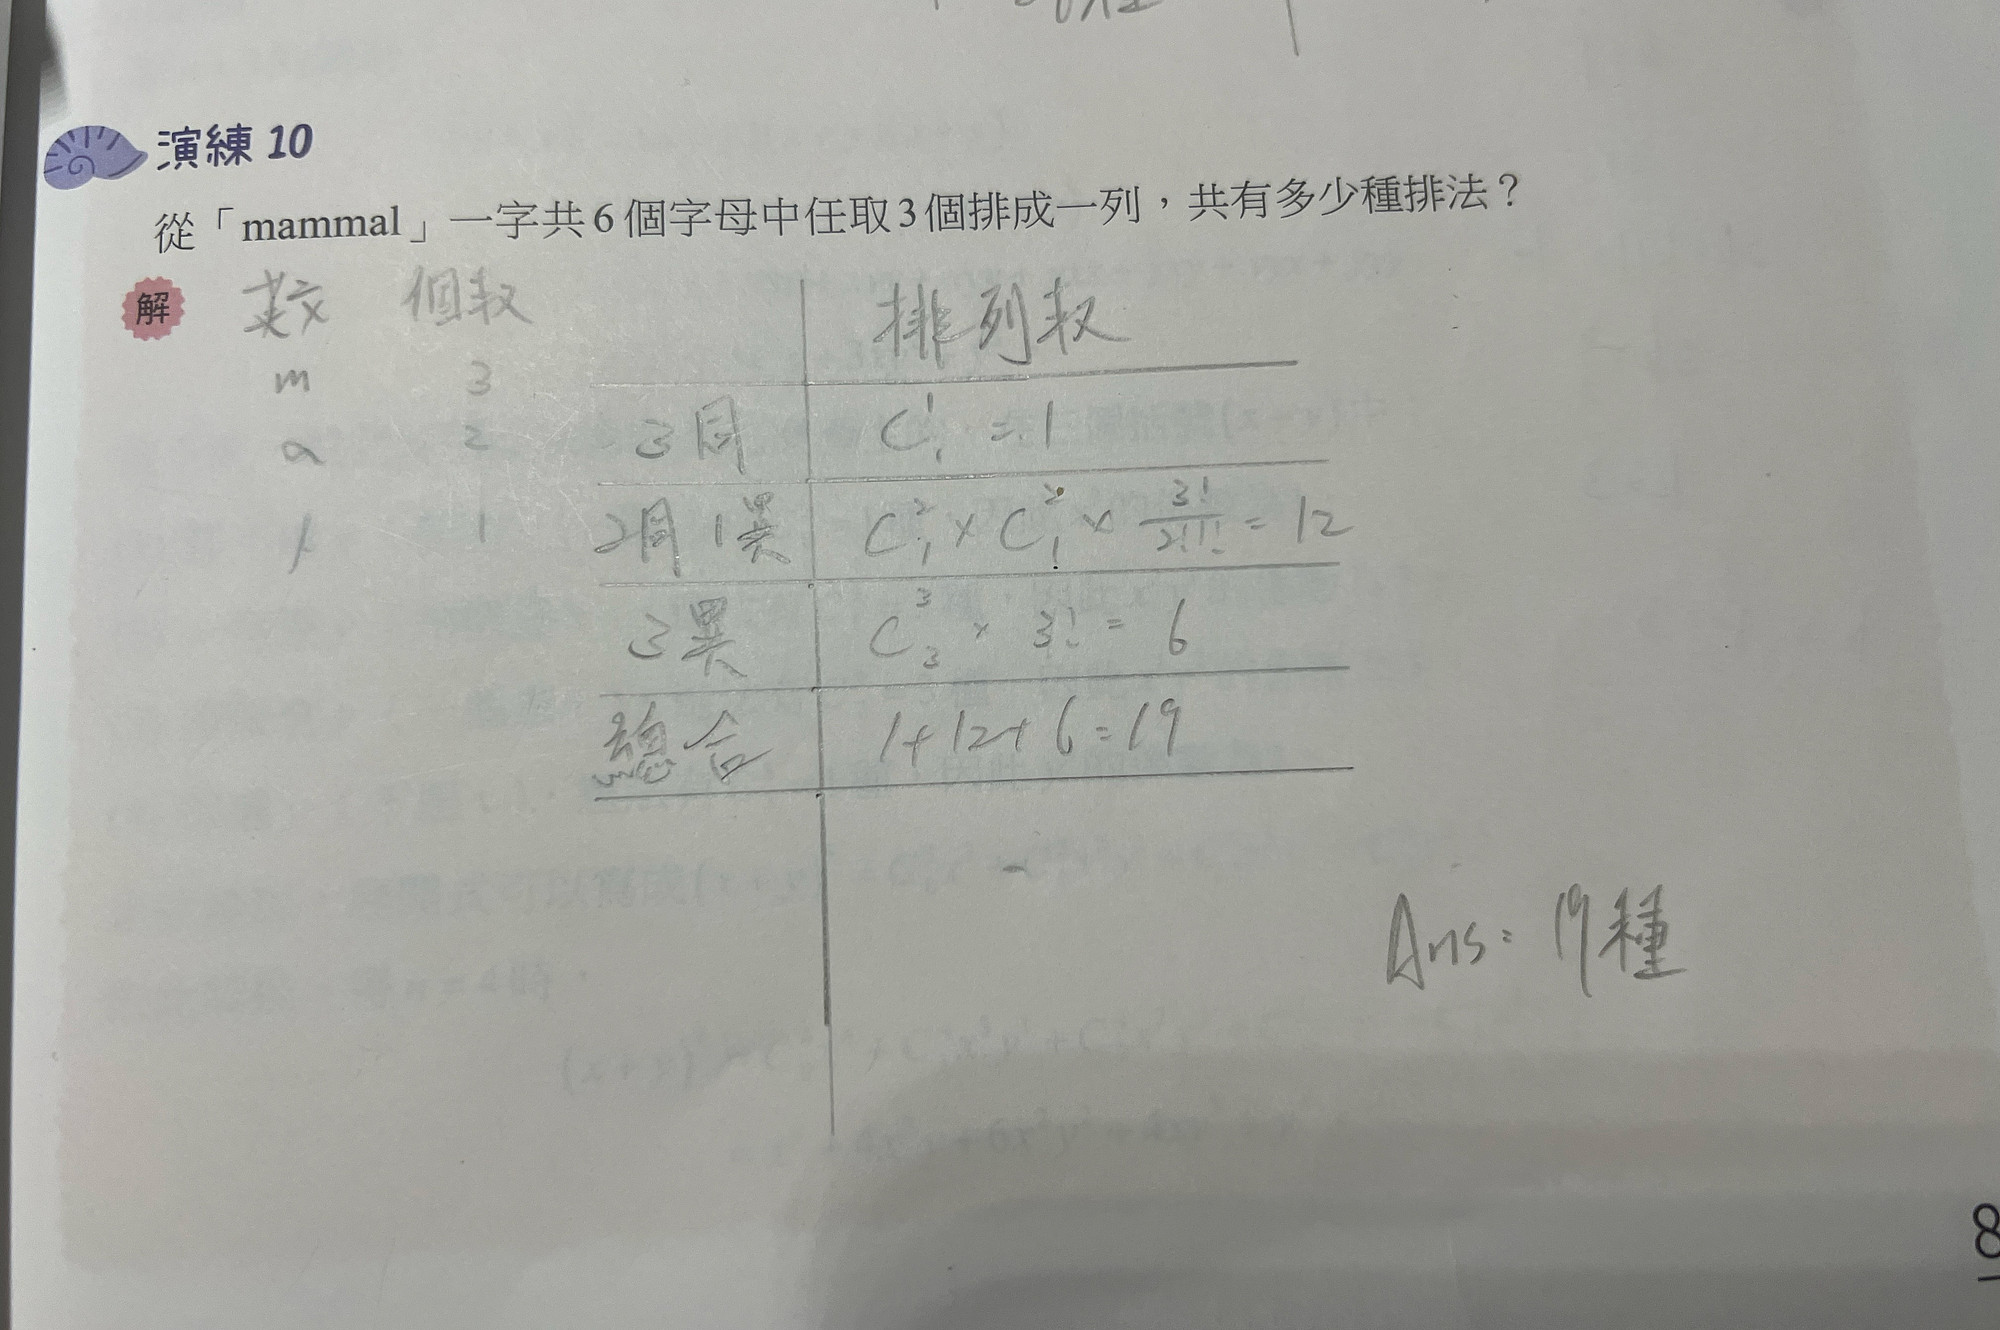 演練 10
從「mammal」一字共6個字母中任取3個排成一列，共有多少種排法？
解 個数 排列数
m 3
a 2
l 1
3同 C¹₁ = 1
2同1異 C²₁ × C²₁ × 3!/2!1! = 12
3異 C³₃ × 3! = 6
總合 1+12+6=19
Ans: 19種
8